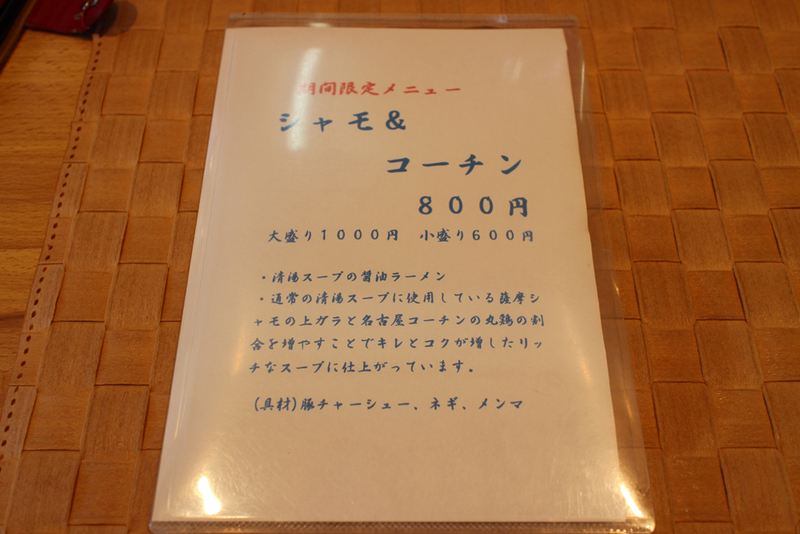 期間限定メニュー
シャモ&
コーチン
８００円
大盛り１０００円　小盛り６００円
・清湯スープの醤油ラーメン
・通常の清湯スープに使用している薩摩シ
ャモの上ガラと名古屋コーチンの丸鶏の割
合を増やすことでキレとコクが増したリッ
チなスープに仕上がっています。
(具材)豚チャーシュー、ネギ、メンマ